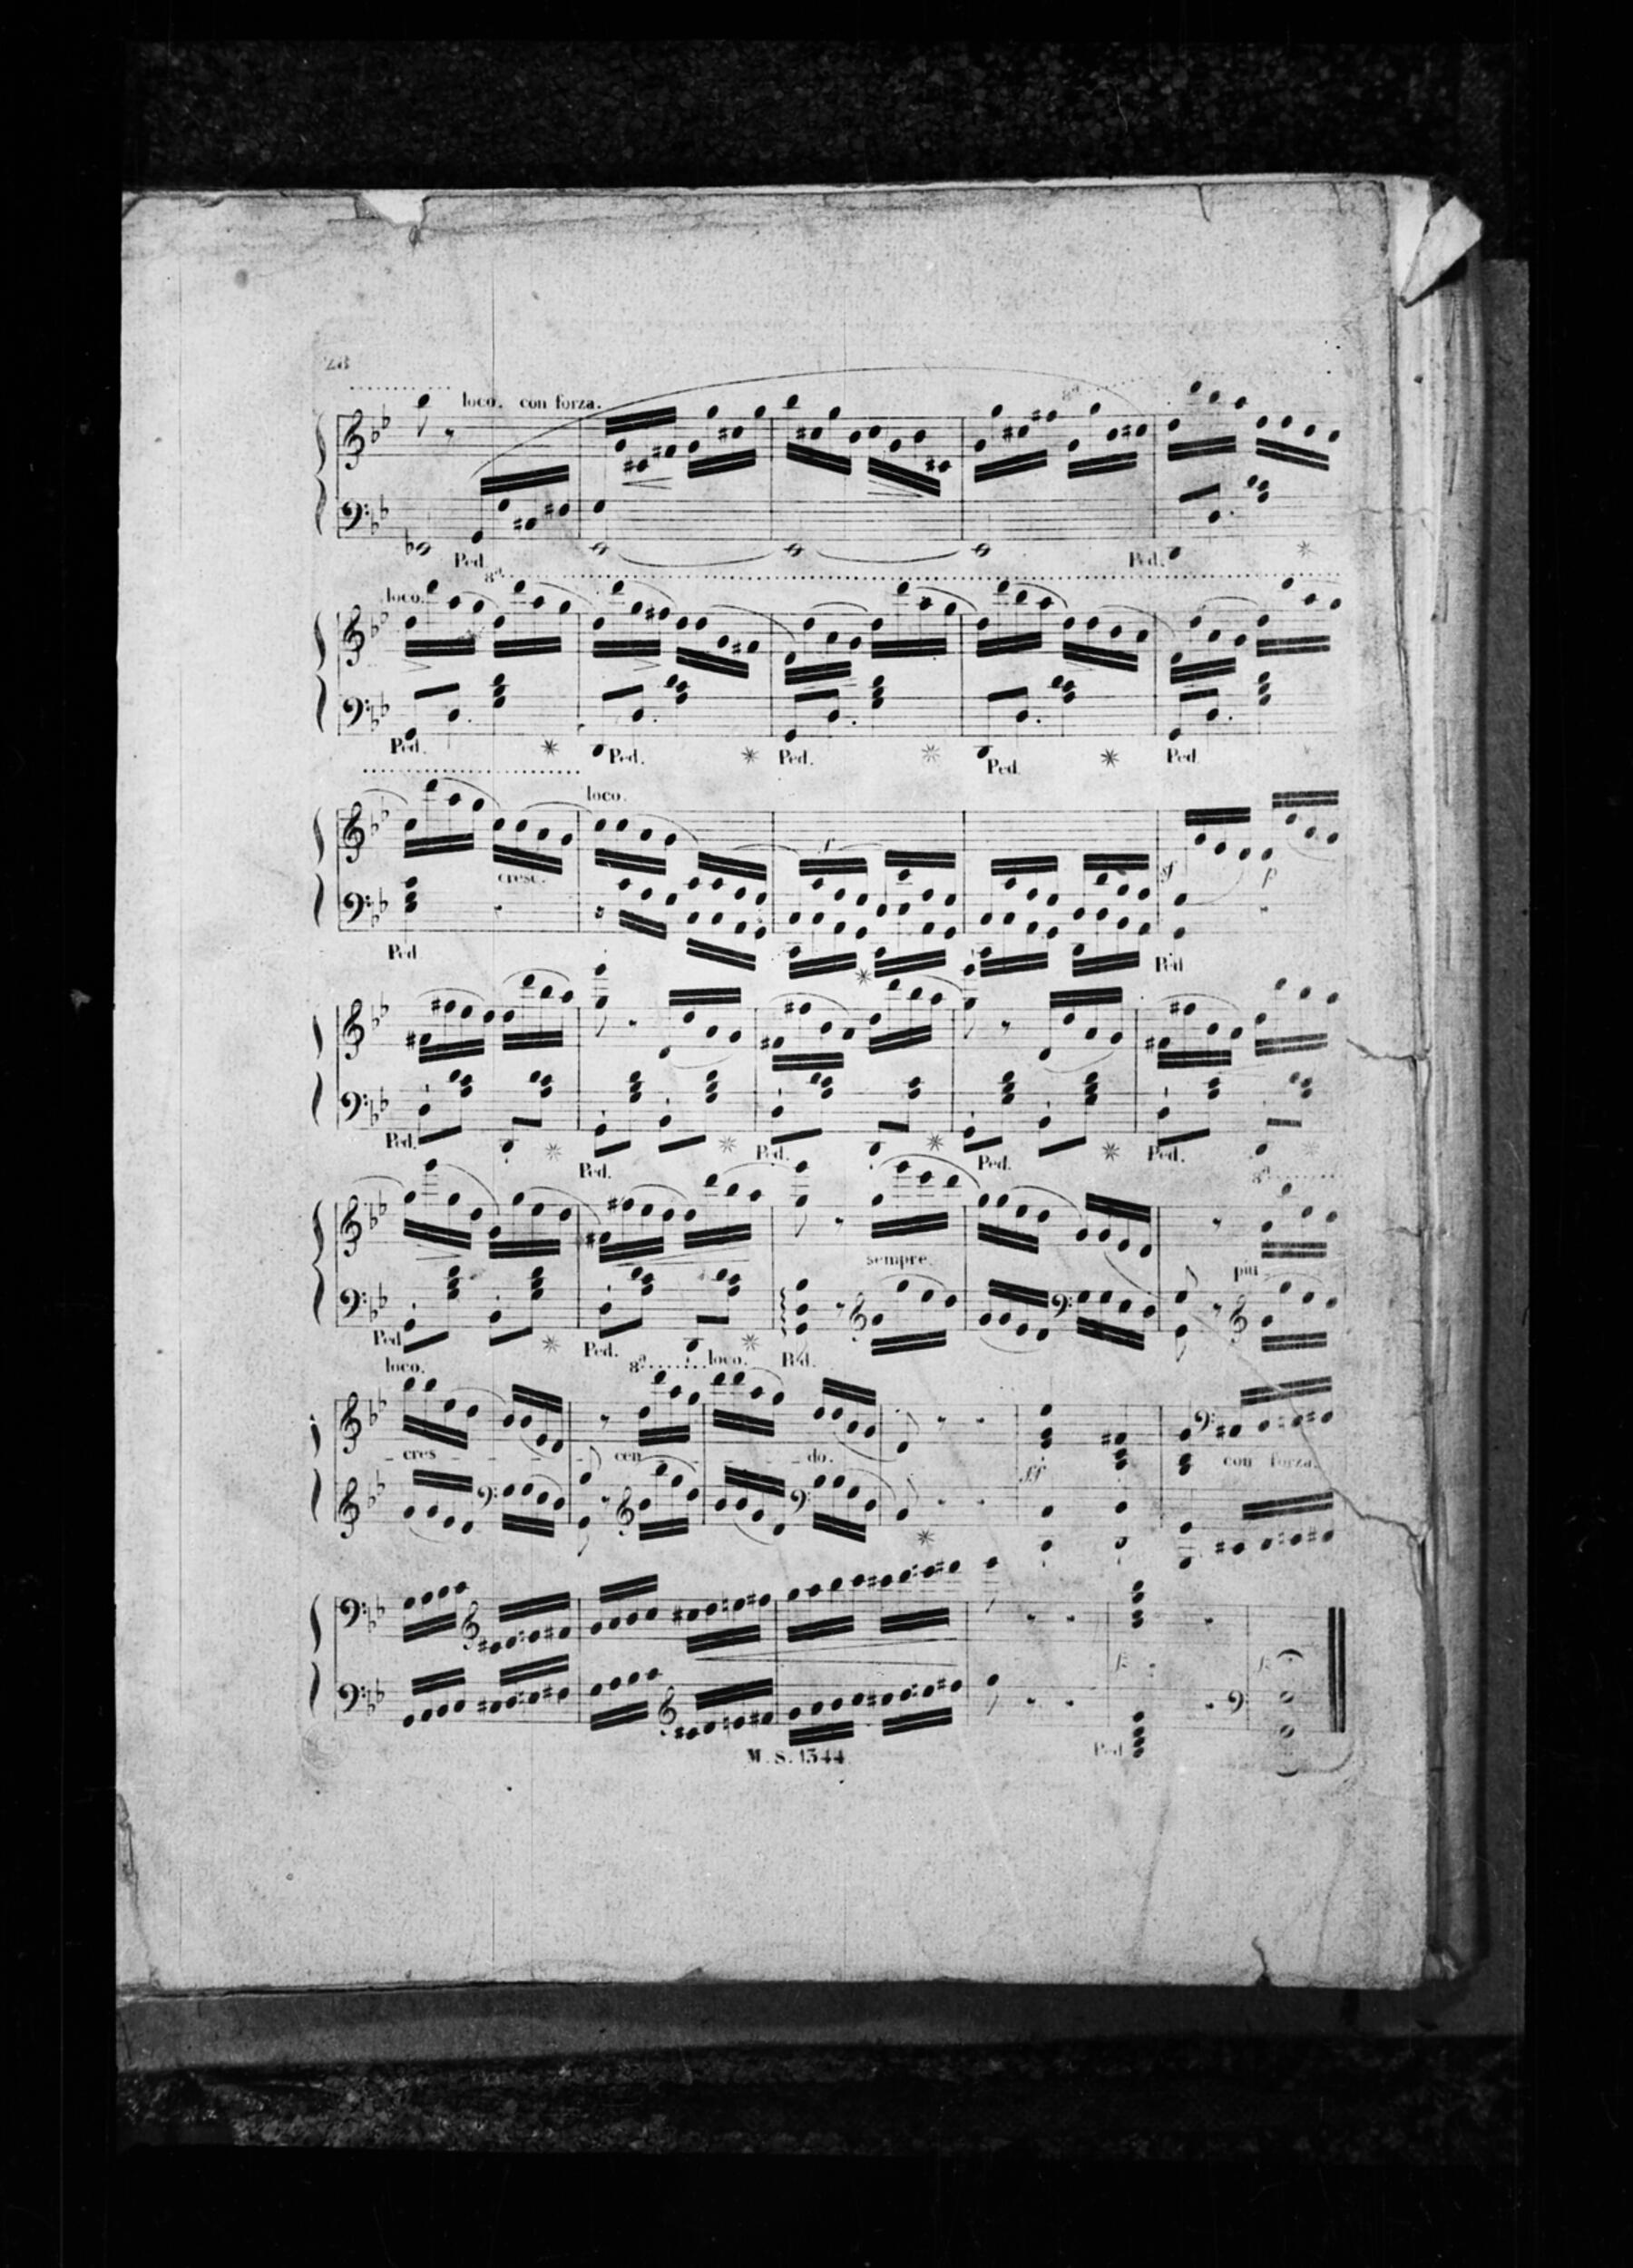 28
loco. con forza.
8ª
Ped. Ped.
8ª
loco.
Ped. Ped. Ped. Ped. Ped.
loco.
cresc. f sf p
Ped. Ped.
Ped. Ped. Ped. Ped. Ped.
8ª
sempre. piu
Ped. Ped. Ped.
loco. 8ª loco.
cres - - - - cen - - - - do. ff con forza.
Ped.
M. S. 1544.